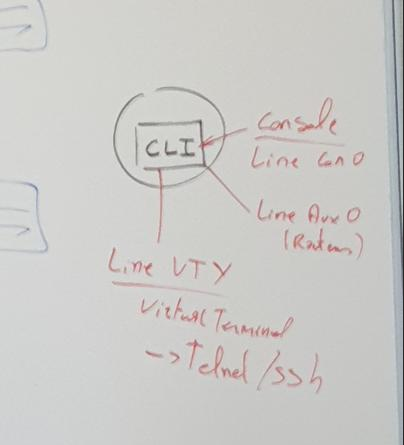 CLI
Console
Line Con 0
Line Aux 0
(Routers)
Line VTY
Virtual Terminal
-> Telnet/ssh